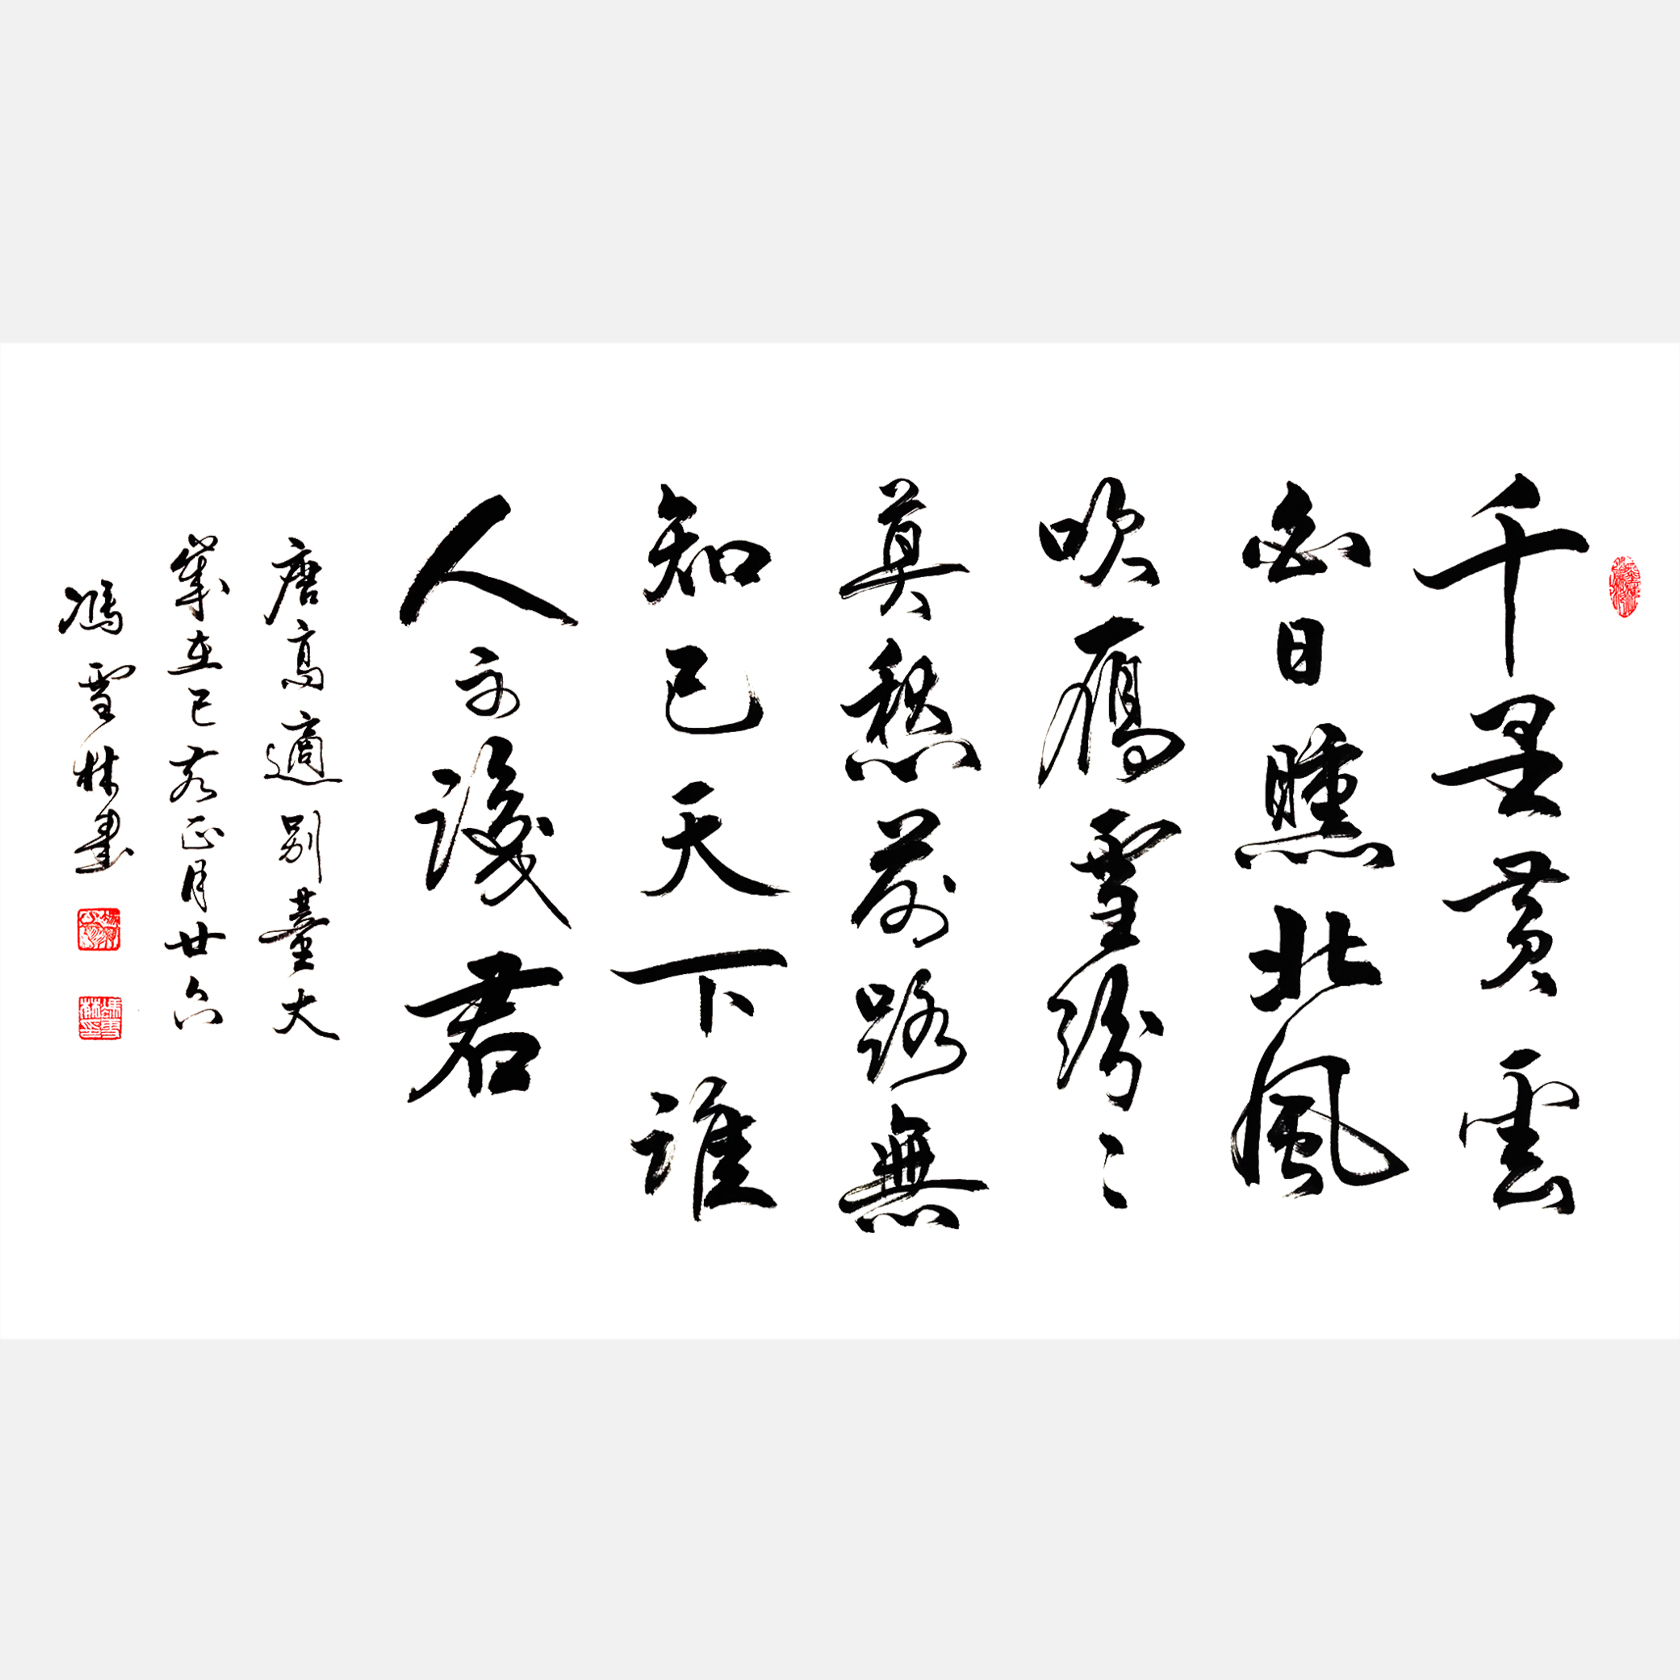 千里黄雲
白日曛北風
吹鴈雪紛々
莫愁前路無
知己天下誰
人不識君
唐高適別董大
歲在己亥正月廿六
馮雪林書
馮雪林印